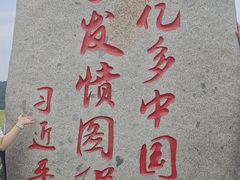 亿多中国
发愤图强
习近平